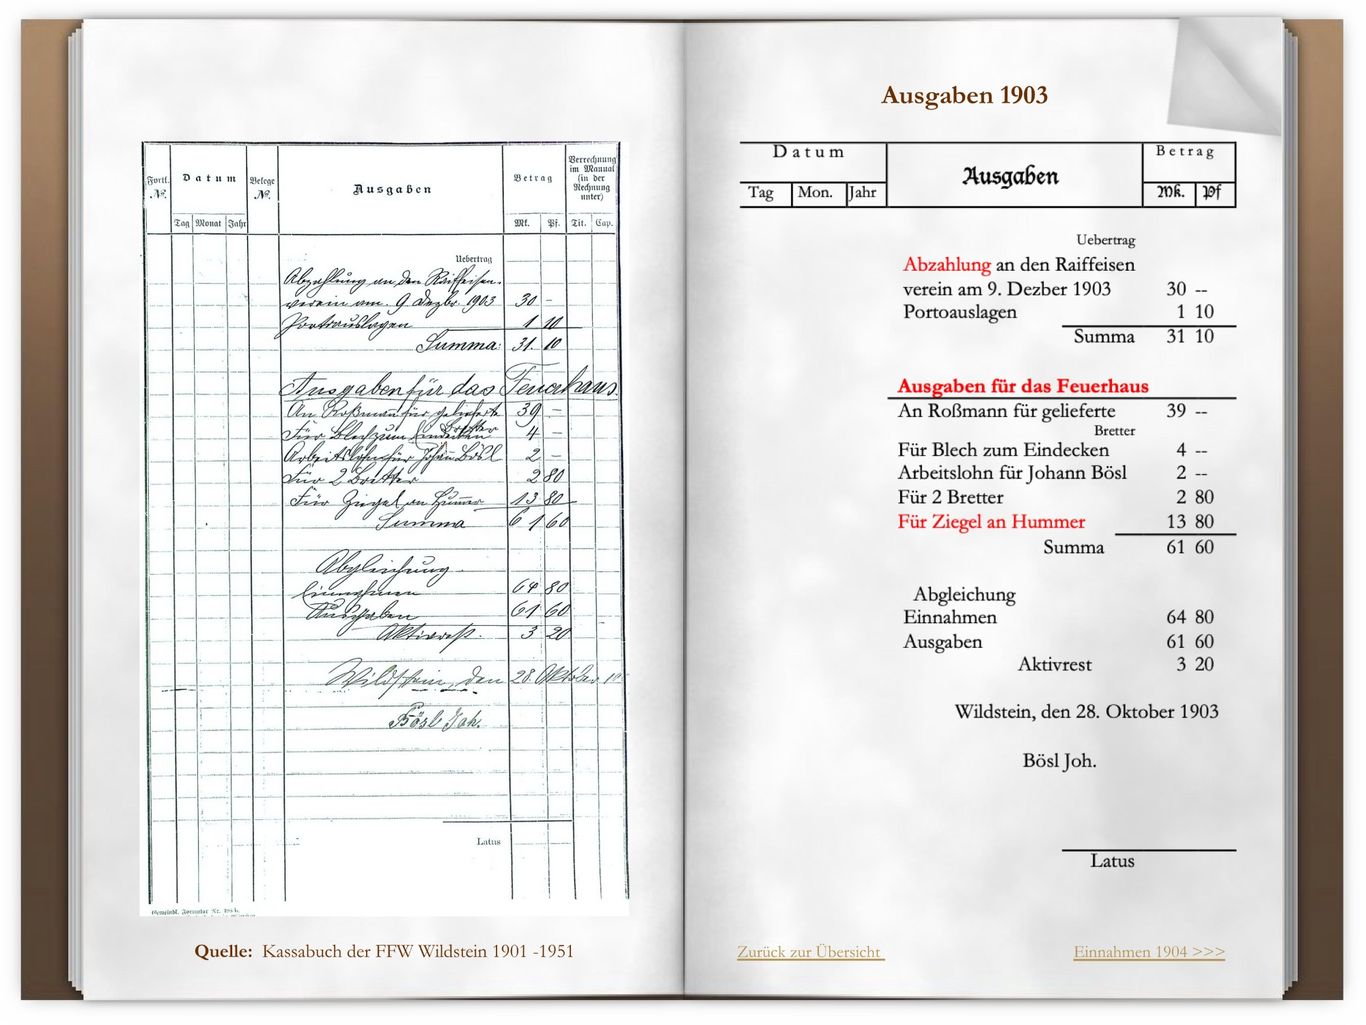 Fortl. №.
Datum
Belege №.
Ausgaben
Betrag
Verrechnung im Manual (in der Rechnung unter)
Tag Monat Jahr
Mk. Pf. Tit. Cap.
Uebertrag
Abzahlung an den Raiffeisen-
verein am 9. Dezbr. 1903 30 -
Portoauslagen 1 10
Summa: 31. 10
Ausgaben für das Feuerhaus.
An Roßmann für gelieferte 39 -
Bretter
Für Blech zum Eindecken 4 -
Arbeitslohn für Johann Bösl 2 -
Für 2 Bretter 2 80
Für Ziegel an Hummer 13 80
Summa 61 60
Abgleichung.
Einnahmen 64 80
Ausgaben 61 60
Aktivrest. 3 20
Wildstein, den 28. Oktober 19
Bösl Joh.
Latus
Gemeindl. Formular Nr.
Quelle: Kassabuch der FFW Wildstein 1901 -1951
Ausgaben 1903
Datum
Ausgaben
Betrag
Tag Mon. Jahr
Mk. Pf
Uebertrag
Abzahlung an den Raiffeisen
verein am 9. Dezber 1903 30 --
Portoauslagen 1 10
Summa 31 10
Ausgaben für das Feuerhaus
An Roßmann für gelieferte 39 --
Bretter
Für Blech zum Eindecken 4 --
Arbeitslohn für Johann Bösl 2 --
Für 2 Bretter 2 80
Für Ziegel an Hummer 13 80
Summa 61 60
Abgleichung
Einnahmen 64 80
Ausgaben 61 60
Aktivrest 3 20
Wildstein, den 28. Oktober 1903
Bösl Joh.
Latus
Zurück zur Übersicht
Einnahmen 1904 >>>